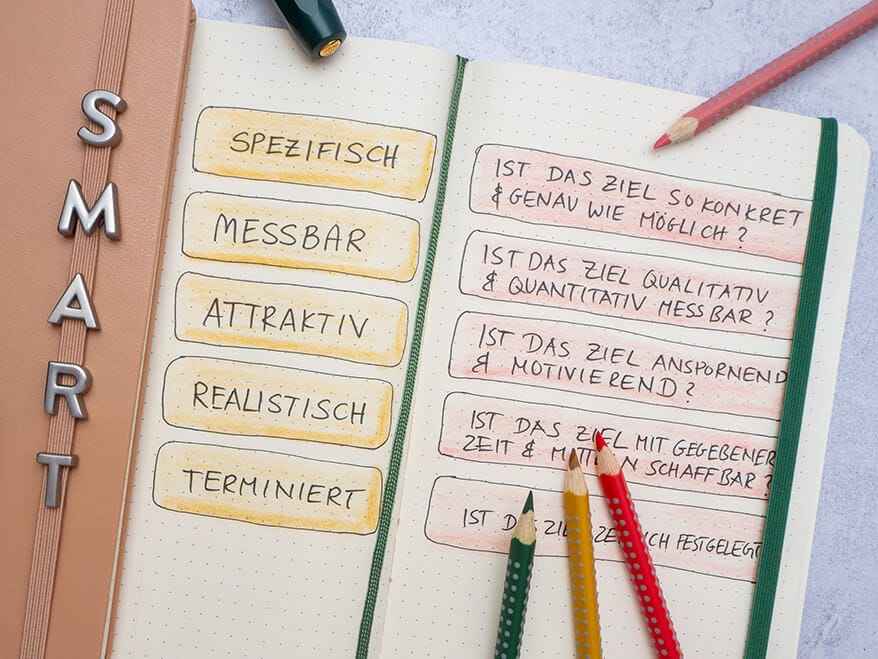 SMART
SPEZIFISCH
MESSBAR
ATTRAKTIV
REALISTISCH
TERMINIERT
IST DAS ZIEL SO KONKRET
& GENAU WIE MÖGLICH?
IST DAS ZIEL QUALITATIV
& QUANTITATIV MESSBAR?
IST DAS ZIEL ANSPORNEND
& MOTIVIEREND?
IST DAS ZIEL MIT GEGEBENER
ZEIT & MITTELN SCHAFFBAR?
IST DAS ZIEL ZEITLICH FESTGELEGT